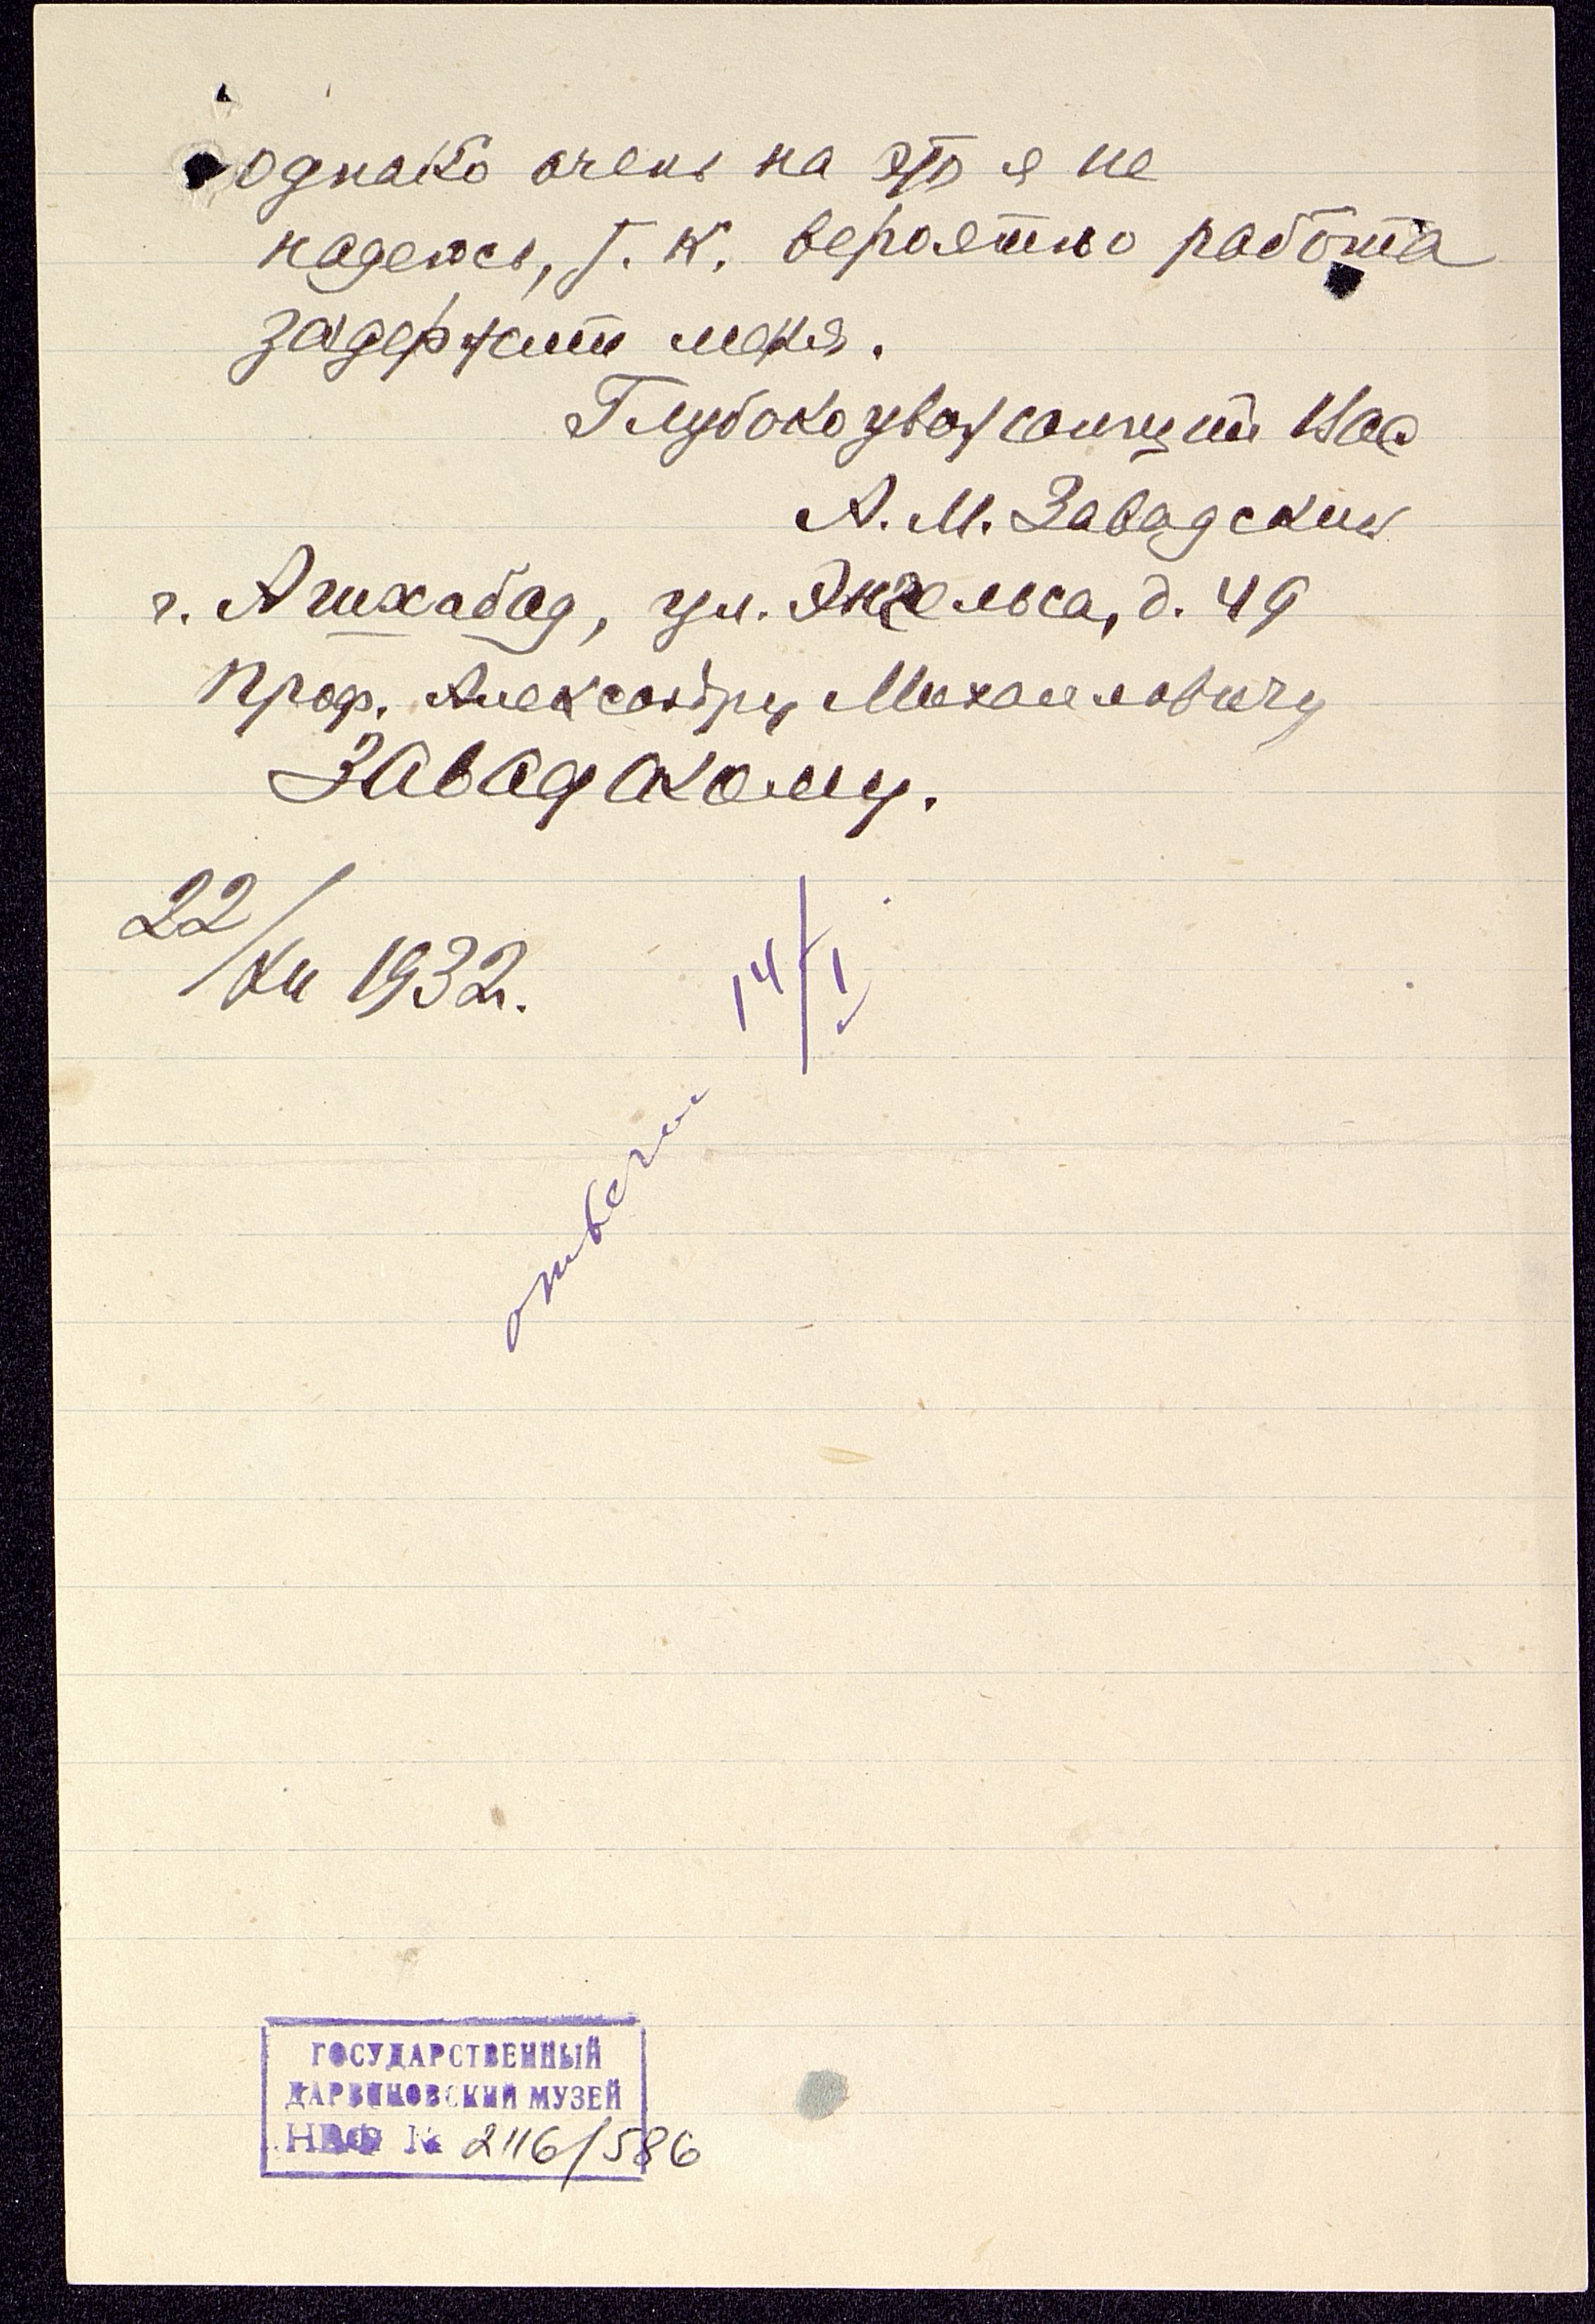 однако очень на это я не
надеюсь, т. к. вероятно работа
задержит меня.
Глубокоуважающий Вас
А. М. Завадский
г. Ашхабад, ул. Энгельса, д. 49
Проф. Александру Михайловичу
Завадскому.
22/XII 1932.
14/I
ответил
ГОСУДАРСТВЕННЫЙ
ДАРВИНОВСКИЙ МУЗЕЙ
НВФ № 2116/586